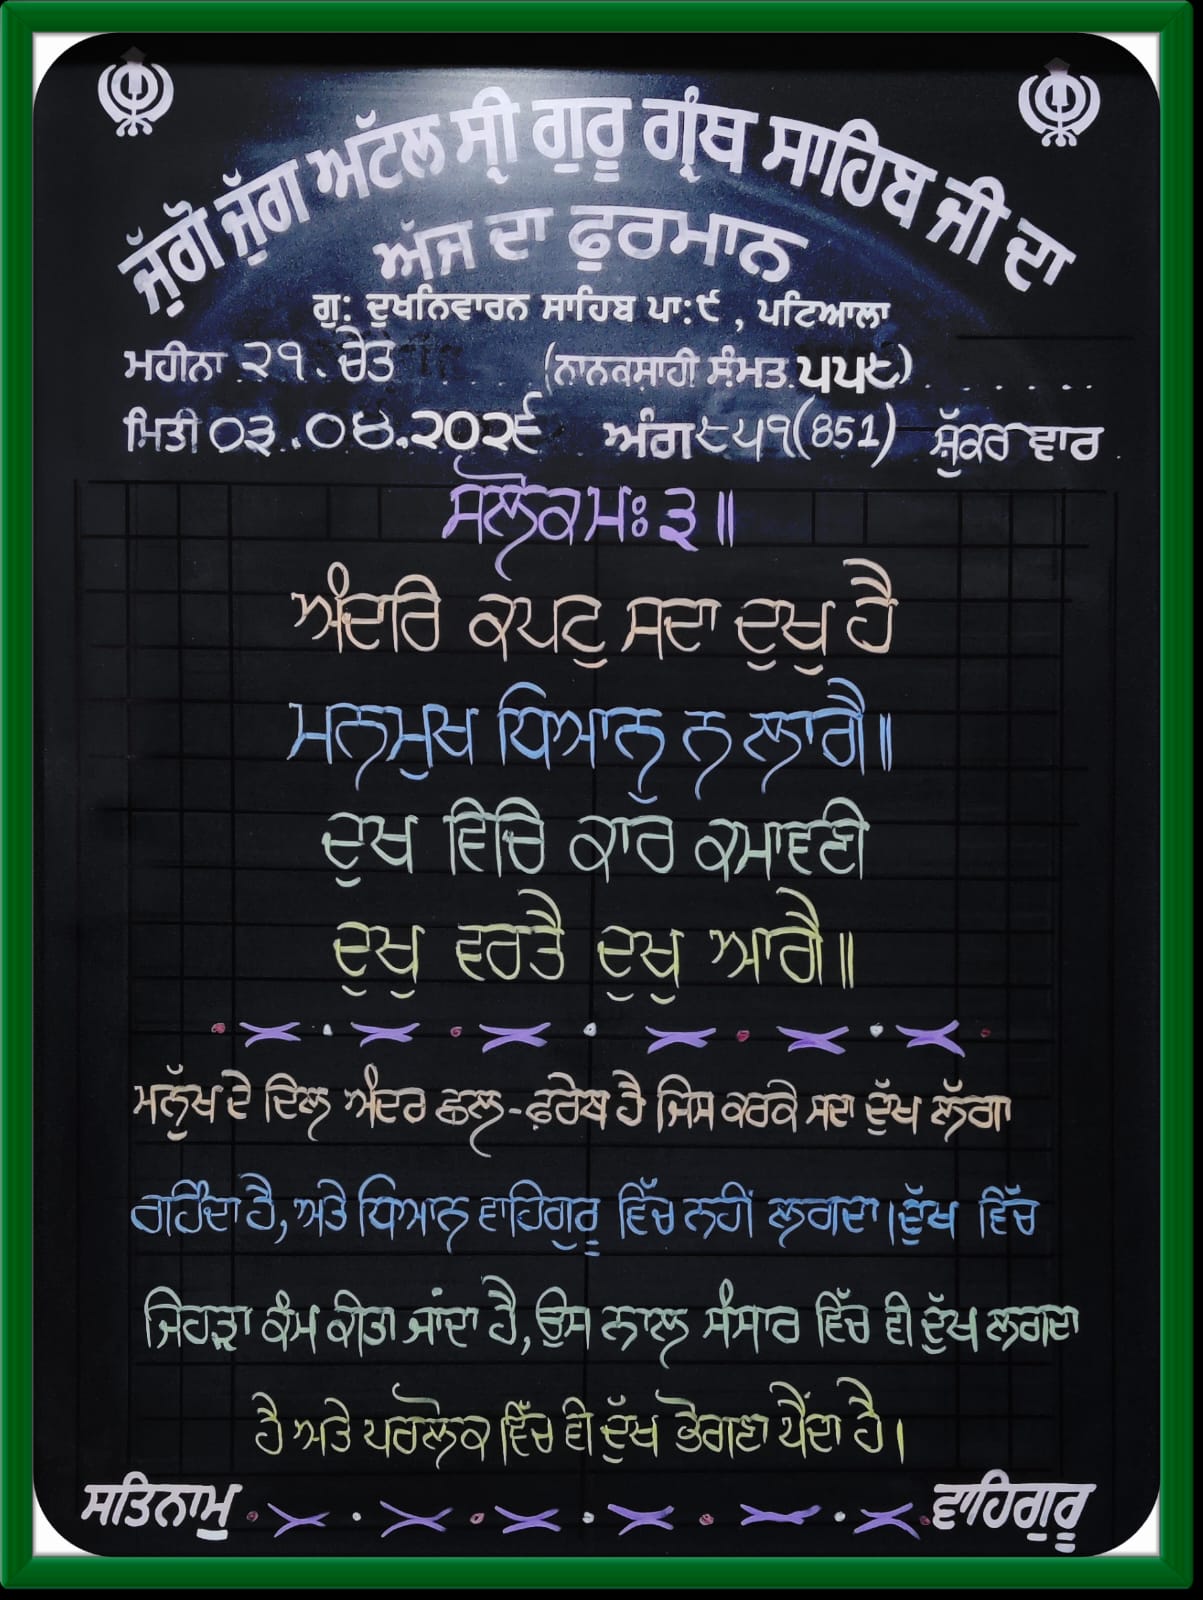 ਜੁੱਗੋ ਜੁੱਗ ਅਟੱਲ ਸ੍ਰੀ ਗੁਰੂ ਗ੍ਰੰਥ ਸਾਹਿਬ ਜੀ ਦਾ
ਅੱਜ ਦਾ ਫੁਰਮਾਨ
ਗੁ: ਦੁਖਨਿਵਾਰਨ ਸਾਹਿਬ ਪਾ:੯ , ਪਟਿਆਲਾ
ਮਹੀਨਾ ੨੧. ਚੇਤ (ਨਾਨਕਸ਼ਾਹੀ ਸੰਮਤ ੫੫੮)
ਮਿਤੀ ੦੩.੦੪.੨੦੨੬ ਅੰਗ ੮੫੧(851) ਸ਼ੁੱਕਰ ਵਾਰ
ਸਲੋਕ ਮਃ ੩ ॥
ਅੰਦਰਿ ਕਪਟੁ ਸਦਾ ਦੁਖੁ ਹੈ
ਮਨਮੁਖ ਧਿਆਨੁ ਨ ਲਾਗੈ ॥
ਦੁਖ ਵਿਚਿ ਕਾਰ ਕਮਾਵਣੀ
ਦੁਖੁ ਵਰਤੈ ਦੁਖੁ ਆਗੈ ॥
ਮਨੁੱਖ ਦੇ ਦਿਲ ਅੰਦਰ ਛਲ-ਫ਼ਰੇਬ ਹੈ ਜਿਸ ਕਰਕੇ ਸਦਾ ਦੁੱਖ ਲੱਗਾ
ਰਹਿੰਦਾ ਹੈ, ਅਤੇ ਧਿਆਨ ਵਾਹਿਗੁਰੂ ਵਿੱਚ ਨਹੀਂ ਲਗਦਾ। ਦੁੱਖ ਵਿੱਚ
ਜਿਹੜਾ ਕੰਮ ਕੀਤਾ ਜਾਂਦਾ ਹੈ, ਉਸ ਨਾਲ ਸੰਸਾਰ ਵਿੱਚ ਵੀ ਦੁੱਖ ਲਗਦਾ
ਹੈ ਅਤੇ ਪਰਲੋਕ ਵਿੱਚ ਵੀ ਦੁੱਖ ਭੋਗਣਾ ਪੈਂਦਾ ਹੈ।
ਸਤਿਨਾਮੁ ਵਾਹਿਗੁਰੂ